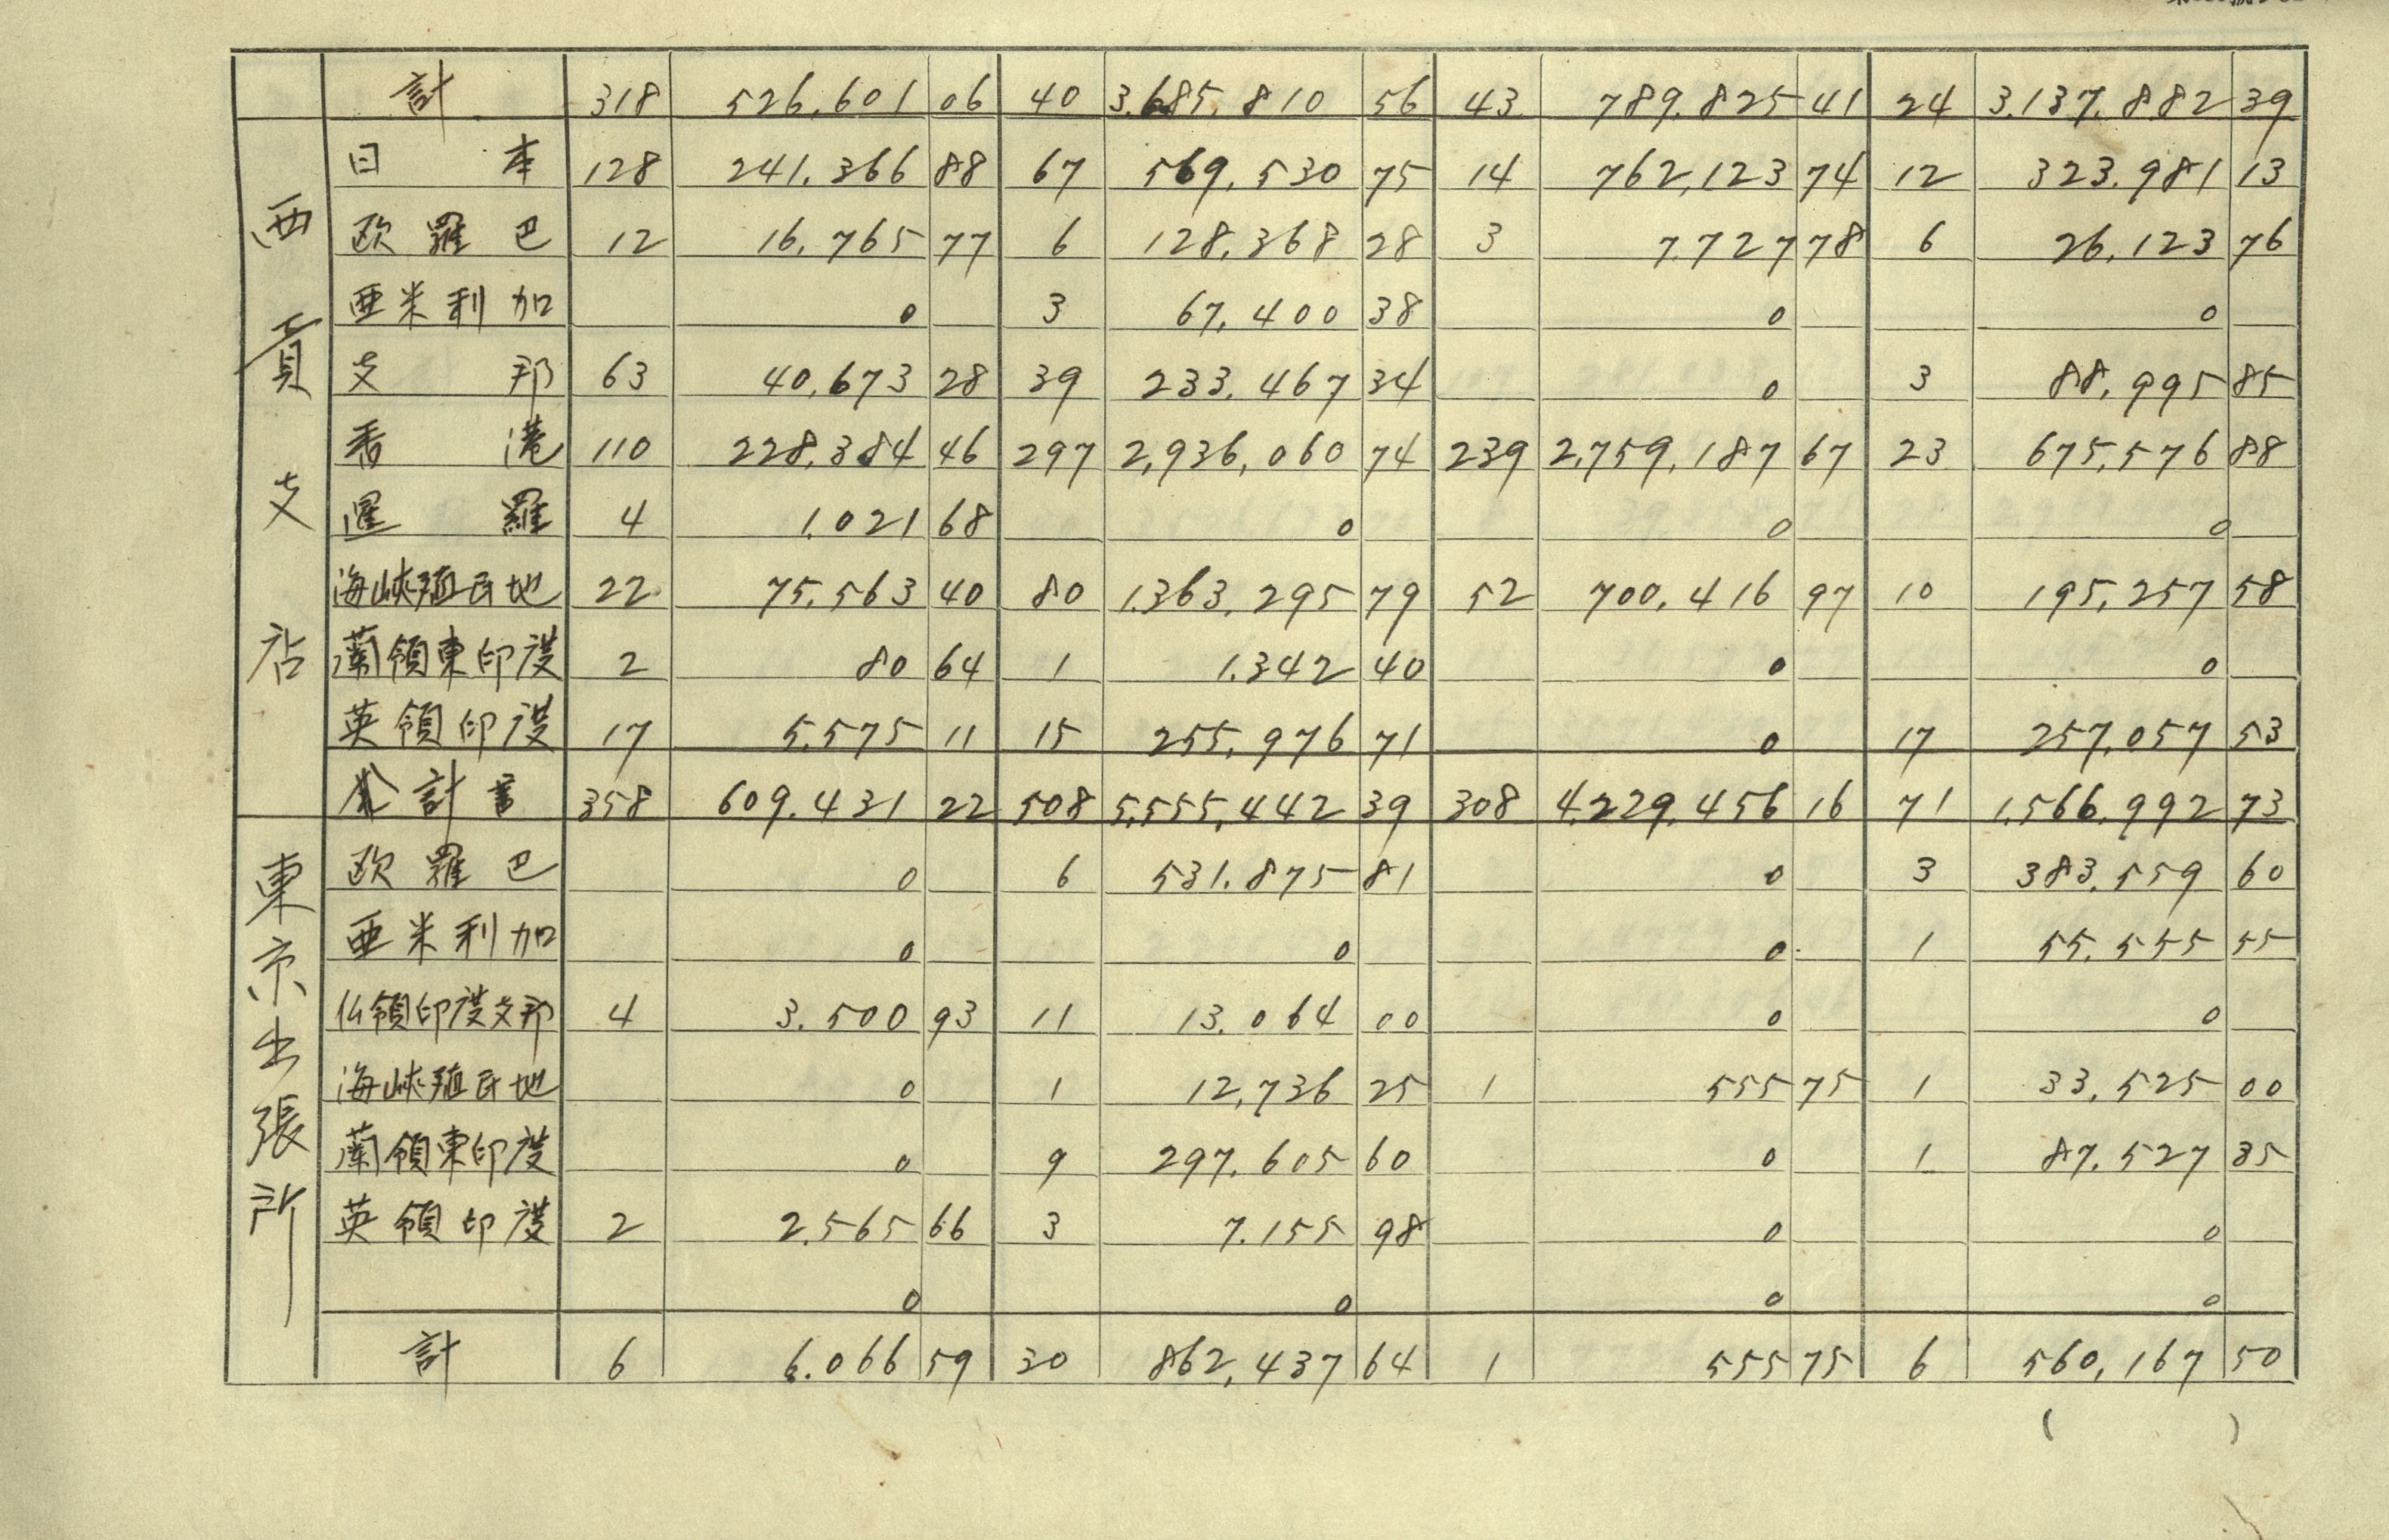 計 318 526,601 06 40 3,685,810 56 43 789,825 41 24 3,137,882 39
西貢支店
日本 128 241,366 88 67 569,530 75 14 762,123 74 12 323,981 13
欧羅巴 12 16,765 77 6 128,368 28 3 7,727 78 6 26,123 76
亜米利加 0 3 67,400 38 0 0
支那 63 40,673 28 39 233,467 34 0 3 88,995 85
香港 110 228,384 46 297 2,936,060 74 239 2,759,187 67 23 675,576 88
暹羅 4 1,021 68 0 0 0
海峡殖民地 22 75,563 40 80 1,363,295 79 52 700,416 97 10 195,257 58
蘭領東印度 2 80 64 1 1,342 40 0 0
英領印度 17 5,575 11 15 255,976 71 0 17 257,057 53
計 358 609,431 22 508 5,555,442 39 308 4,229,456 16 71 1,566,992 73
東京出張所
欧羅巴 0 6 531,875 81 0 3 383,559 60
亜米利加 0 0 0 1 55,555 55
仏領印度支那 4 3,500 93 11 13,064 00 0 0
海峡殖民地 0 1 12,736 25 1 555 75 1 33,525 00
蘭領東印度 0 9 297,605 60 0 1 87,527 35
英領印度 2 2,565 66 3 7,155 98 0 0
0 0 0 0
計 6 6,066 59 30 862,437 64 1 555 75 6 560,167 50
( )